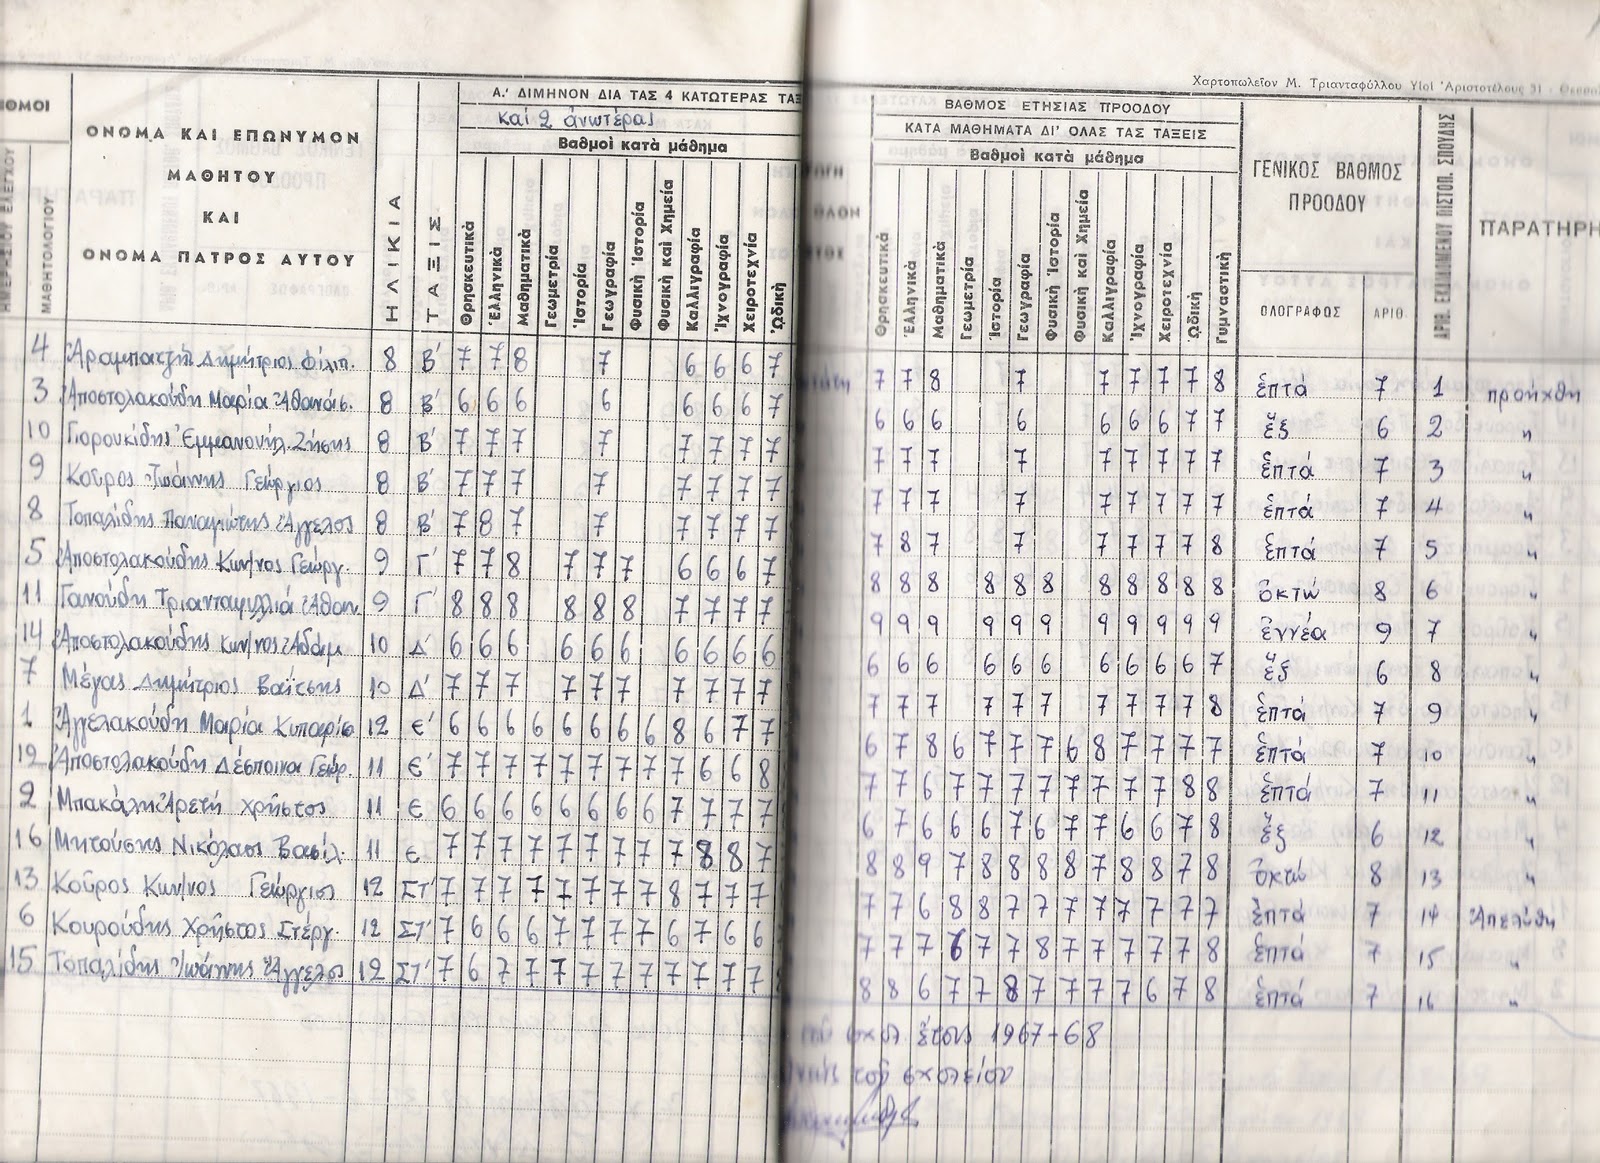 Χαρτοπωλεῖον Μ. Τριανταφύλλου Υἱοὶ Ἀριστοτέλους 31 - Θεσσαλ
ΘΜΟΙ
ΗΜΕΡΗΣΙΟΥ ΕΛΕΓΧΟΥ
ΜΑΘΗΤΟΛΟΓΙΟΥ
ΟΝΟΜΑ ΚΑΙ ΕΠΩΝΥΜΟΝ
ΜΑΘΗΤΟΥ
ΚΑΙ
ΟΝΟΜΑ ΠΑΤΡΟΣ ΑΥΤΟΥ
ΗΛΙΚΙΑ
ΤΑΞΙΣ
Α.' ΔΙΜΗΝΟΝ ΔΙΑ ΤΑΣ 4 ΚΑΤΩΤΕΡΑΣ ΤΑΞ
καὶ 2 ἀνωτέρας
Βαθμοὶ κατὰ μάθημα
Θρησκευτικὰ Ἑλληνικὰ Μαθηματικὰ Γεωμετρία Ἱστορία Γεωγραφία Φυσικὴ Ἱστορία Φυσικὴ καὶ Χημεία Καλλιγραφία Ἰχνογραφία Χειροτεχνία Ὠδικὴ
4 Ἀραμπατζῆ Δημήτριος Φίλιπ. 8 Β' 7 7 8 7 6 6 6 7
3 Ἀποστολακούδη Μαρία Ἀθανάσ. 8 Β' 6 6 6 6 6 6 6 7
10 Γιορουκίδης Ἐμμανουήλ Ζήσης 8 Β' 7 7 7 7 7 7 7 7
9 Κοῦρος Ἰωάννης Γεώργιος 8 Β' 7 7 7 7 7 7 7 7
8 Τοπαλίδης Παναγιώτης Ἄγγελος 8 Β' 7 8 7 7 7 7 7 7
5 Ἀποστολακούδης Κων/νος Γεώργ. 9 Γ' 7 7 8 7 7 7 6 6 6 7
11 Γανούδη Τριανταφυλλιά Ἀθαν. 9 Γ' 8 8 8 8 8 8 7 7 7 7
14 Ἀποστολακούδης Κων/νος Ἀδάμ 10 Δ' 6 6 6 6 6 6 6 6 6 6
7 Μέγας Δημήτριος Βαΐτσης 10 Δ' 7 7 7 7 7 7 7 7 7 7
1 Ἀγγελακούδη Μαρία Κυπαρίσ 12 Ε' 6 6 6 6 6 6 6 6 8 6 7 7
12 Ἀποστολακούδη Δέσποινα Γεώρ. 11 Ε' 7 7 7 7 7 7 7 7 7 6 6 8
2 Μπακάλη Ἀρετή Χρῆστος 11 Ε 6 6 6 6 6 6 6 6 7 7 7 7
16 Μητούσης Νικόλαος Βασίλ. 11 Ε 7 7 7 7 7 7 7 7 7 8 8 7
13 Κοῦρος Κων/νος Γεώργιος 12 ΣΤ' 7 7 7 7 7 7 7 7 8 7 7 7
6 Κουρούδης Χρῆστος Στέργ. 12 ΣΤ' 7 6 6 6 7 7 7 7 6 7 6 6
15 Τοπαλίδης Ἰωάννης Ἄγγελος 12 ΣΤ' 7 6 7 7 7 7 7 7 7 7 7 7
ΒΑΘΜΟΣ ΕΤΗΣΙΑΣ ΠΡΟΟΔΟΥ
ΚΑΤΑ ΜΑΘΗΜΑΤΑ ΔΙ' ΟΛΑΣ ΤΑΣ ΤΑΞΕΙΣ
Βαθμοὶ κατὰ μάθημα
Θρησκευτικὰ Ἑλληνικὰ Μαθηματικὰ Γεωμετρία Ἱστορία Γεωγραφία Φυσικὴ Ἱστορία Φυσικὴ καὶ Χημεία Καλλιγραφία Ἰχνογραφία Χειροτεχνία Ὠδικὴ Γυμναστικὴ
ΓΕΝΙΚΟΣ ΒΑΘΜΟΣ
ΠΡΟΟΔΟΥ
ΟΛΟΓΡΑΦΩΣ ΑΡΙΘ.
ΑΡΙΘ. ΕΚΔΙΔΟΜΕΝΟΥ ΠΙΣΤΟΠ. ΣΠΟΥΔΗΣ
ΠΑΡΑΤΗΡΗ
7 7 8 7 7 7 7 7 8 ἑπτά 7 1 προήχθη
6 6 6 6 6 6 6 7 7 ἕξ 6 2 "
7 7 7 7 7 7 7 7 7 ἑπτά 7 3 "
7 7 7 7 7 7 7 7 7 ἑπτά 7 4 "
7 8 7 7 7 7 7 7 8 ἑπτά 7 5 "
8 8 8 8 8 8 8 8 8 8 8 ὀκτώ 8 6 "
9 9 9 9 9 9 9 9 9 9 9 ἐννέα 9 7 "
6 6 6 6 6 6 6 6 6 6 7 ἕξ 6 8 "
7 7 7 7 7 7 7 7 7 7 8 ἑπτά 7 9 "
6 7 8 6 7 7 7 6 8 7 7 7 7 ἑπτά 7 10 "
7 7 6 7 7 7 7 7 7 7 7 8 8 ἑπτά 7 11 "
6 7 6 6 6 7 6 7 7 6 6 7 8 ἕξ 6 12 "
8 8 9 7 8 8 8 8 7 8 8 7 8 ὀκτώ 8 13 "
7 7 6 8 8 7 7 7 7 7 7 7 7 ἑπτά 7 14 Ἀπελύθη
7 7 7 6 7 7 8 7 7 7 7 7 8 ἑπτά 7 15 "
8 8 6 7 7 8 7 7 7 7 6 7 8 ἑπτά 7 16 "
τοῦ σχολ. ἔτους 1967-68
τοῦ σχολείου